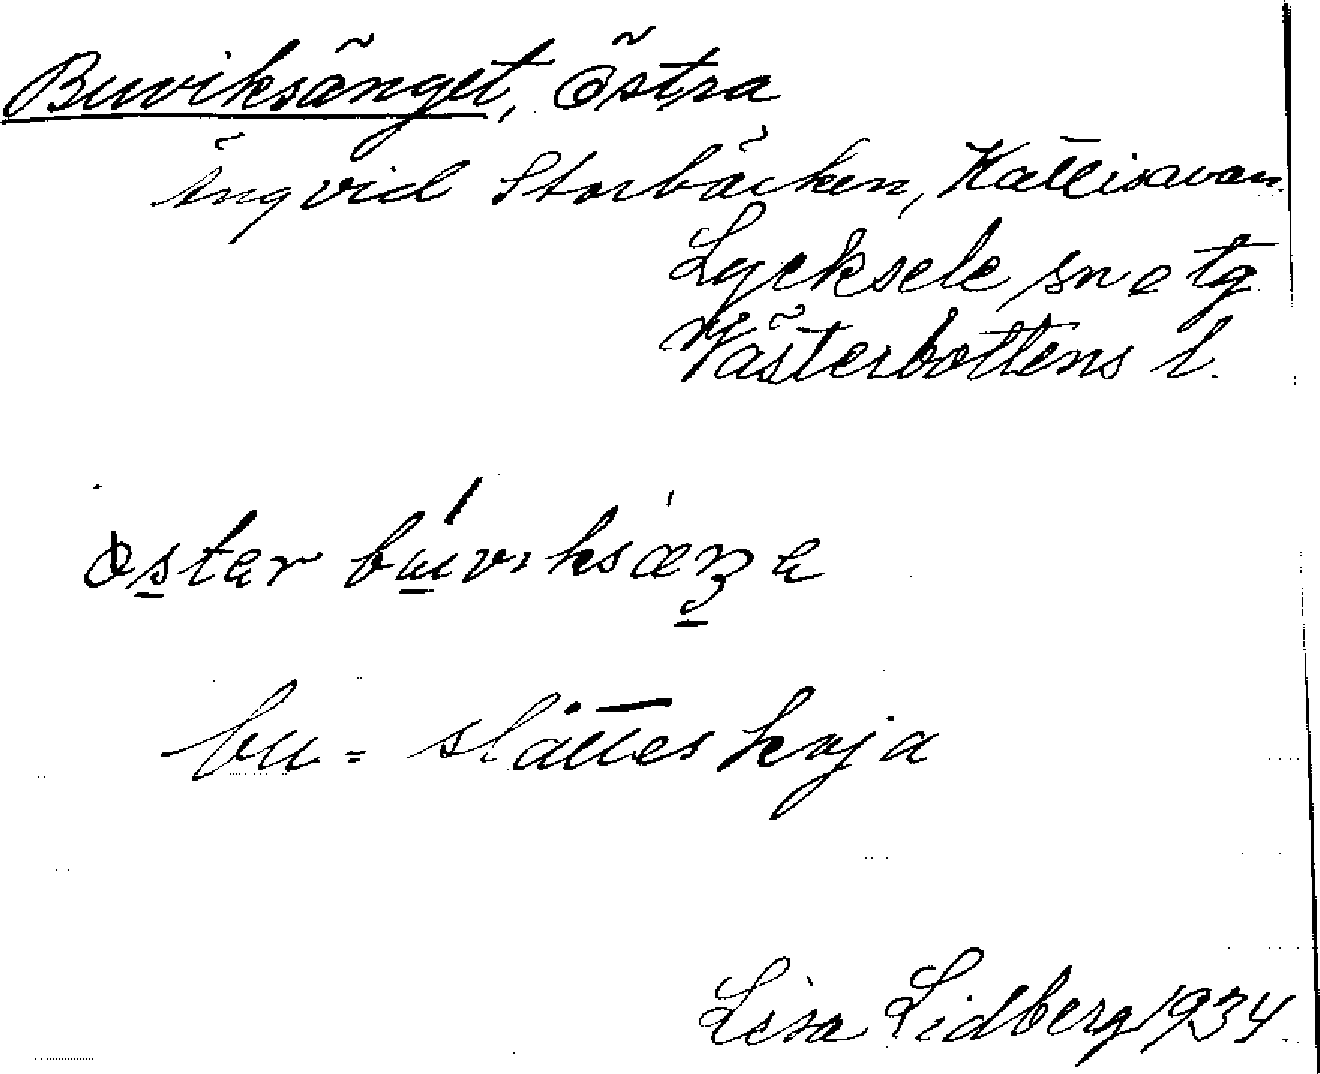 Buviksänget, Östra
ängvid Storbäcken, Kattisavan.
Lycksele sn o tg
Västerbottens l.
östər búviksæŋe
bu = slåtteskoja
Lisa Lidberg 1934